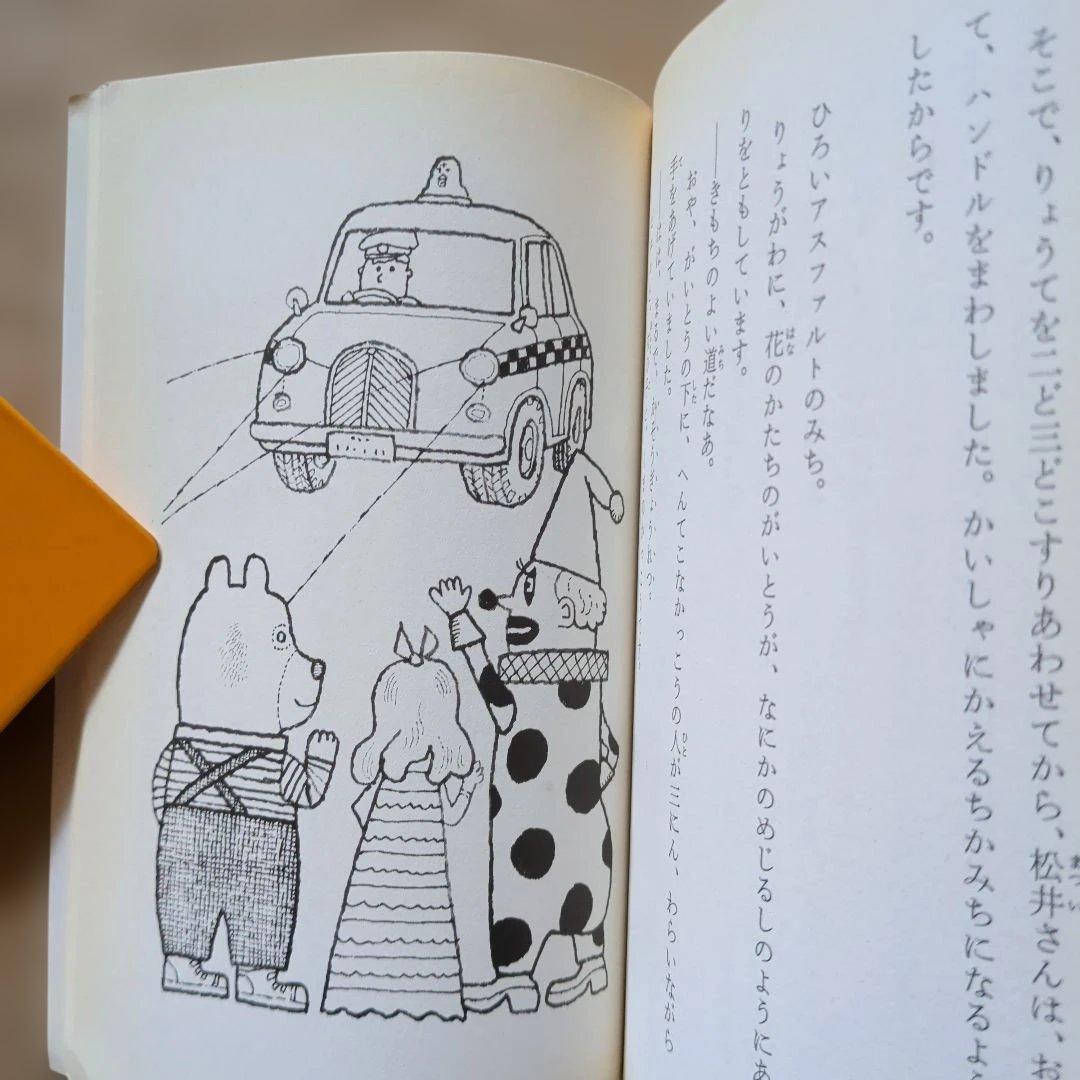 そこで、りょうてを二ど三どこすりあわせてから、松井さんは、お
て、ハンドルをまわしました。かいしゃにかえるちかみちになるよう
したからです。
ひろいアスファルトのみち。
りょうがわに、花のかたちのがいとうが、なにかのめじるしのようにあ
りをともしています。
――きもちのよい道だなあ。
おや、がいとうの下に、へんてこなかっこうの人が三にん、わらいながら
手をあげていました。